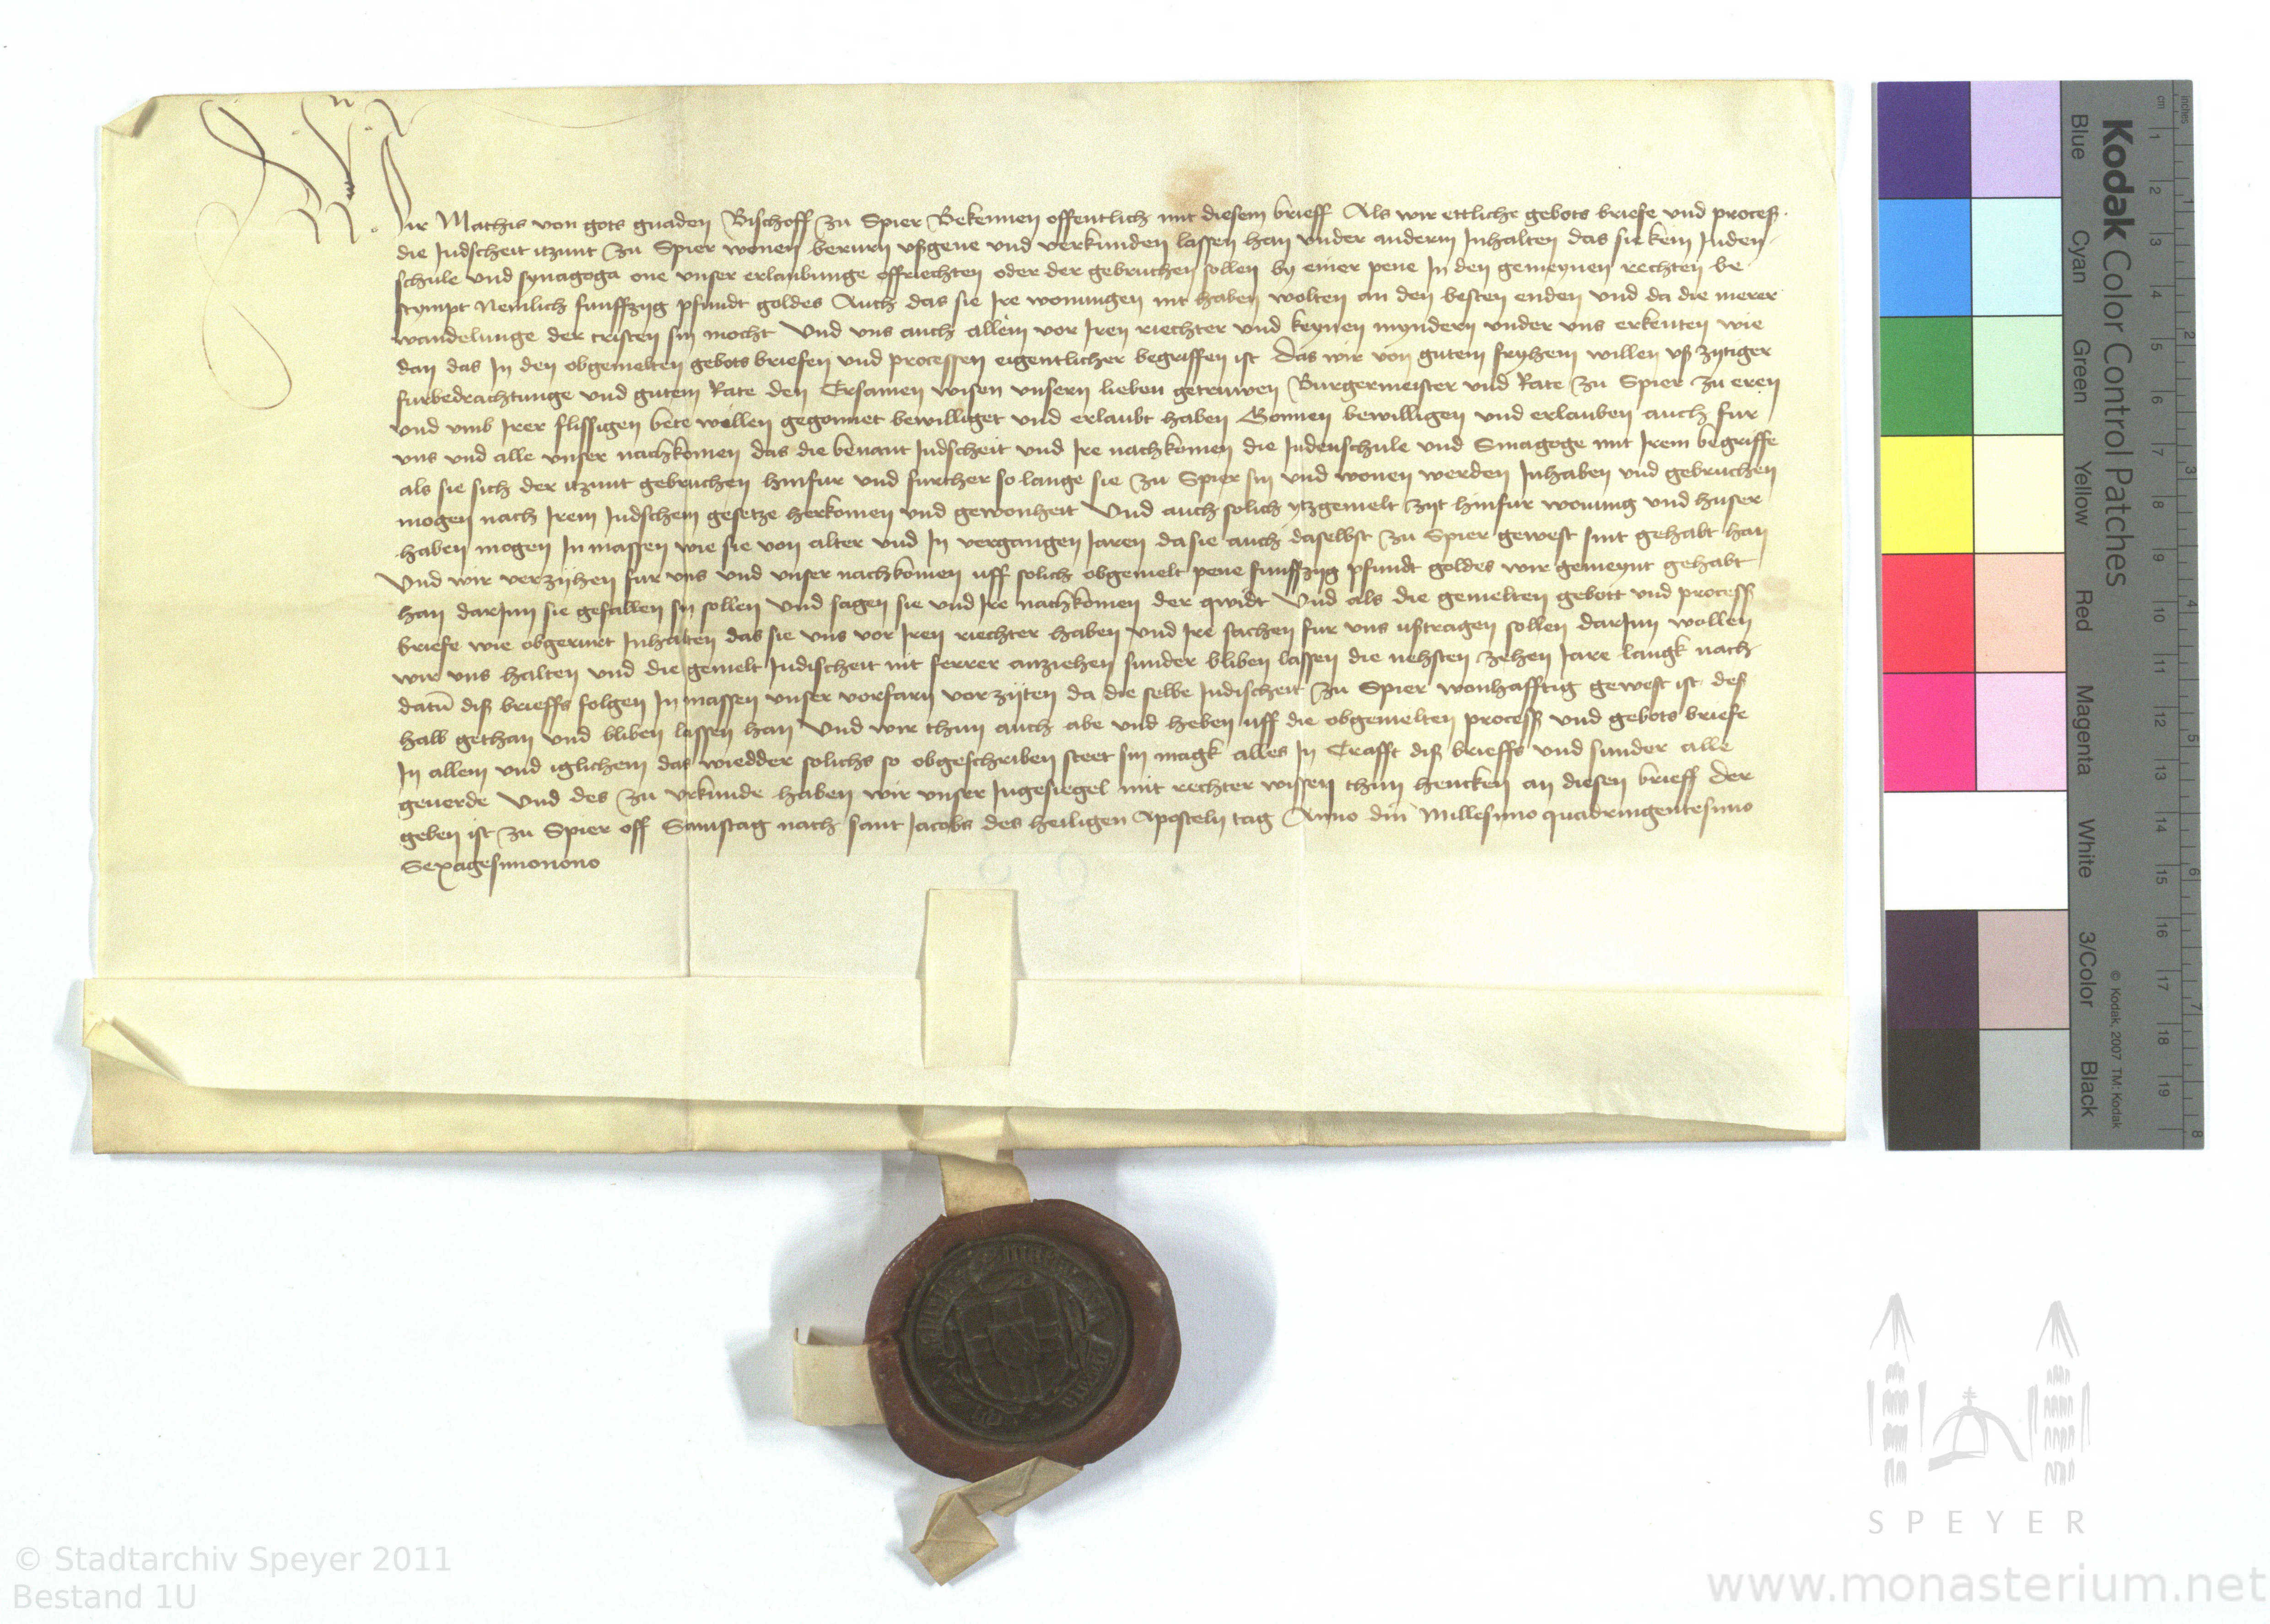 Wir Mathis von gots gnaden Bischoff zu Spier Bekennen offentlich mit diesem brieff Als wir ettliche gebots briefe vnd proceß
die Judscheit itzunt zu Spier wonen berurn vßgene vnd verkunden lassen han vnder anderm Inhalten das sie kein Juden
schule vnd synagoga one vnser erlaubunge offriechten oder der gebruchen sollen by einer pene In den gemeynen rechten be
stympt Nemlich funffzijg pfundt goldes Auch das sie Ire wonungen nit haben wolten an den besten enden vnd da die merer
wandelunge der cristen sin mocht Vnd vns auch allein vor Iren riechter vnd keynen myndern vnder vns erkenten wie
dan das In den obgemelten gebots briefen vnd processen eigentlicher begriffen ist Das wir von gutem fryhem willen vß zijtiger
furbedrachtunge vnd gutem Rate den Ersamen wisen vnsern lieben getruwen Burgermeister vnd Rate zu Spier zu eren
vnd vmb Irer flissigen bete willen gegonnet bewilliget vnd erlaubt haben Gonnen bewilligen vnd erlauben auch fur
vns vnd alle vnser nachkomen das die benant Judscheit vnd Ire nachkomen die Judenschule vnd Sinagoge mit Irem begriffe
als sie sich der itzunt gebruchen hinfur vnd further so lange sie zu Spier sin vnd wonen werden Inhaben vnd gebruchen
mogen nach Irem Judschem gesetze herkomen vnd gewonheit Vnd auch solich ytzgemelt zijt hinfur wonung vnd huser
haben mogen In massen wie sie von alter vnd In vergangen Jaren da sie auch daselbst zu Spier gewest sint gehabt han
Vnd wir verzijhen fur vns vnd vnser nachkomen uff solich obgemelt pene funffzijg pfundt goldes wir gemeynt gehabt
han darInn sie gefallen sin sollen Vnd sagen sie vnd Ire nachkomen der qwidt Vnd als die gemelten gebott vnd proceß
briefe wie obgerurt Inhalten das sie vns vor Iren riechter haben vnd Ire sachen fur vns ußtragen sollen darInn wollen
wir vns halten vnd die gemelt Judischeit nit ferrer anziehen sunder bliben lassen die nehsten zehen Jare langk nach
datu diß brieffs folgen In massen vnser vorfarn vor zijten da die selbe Judischeit zu Spier wonhafftig gewest ist deß
halb gethan vnd bliben lassen han Vnd wir thun auch abe vnd heben uff die obgemelten proceß vnd gebots briefe
In allem vnd iglichem das wiedder solichs so obgeschriben steet sin magk alles In Crafft diß brieffs vnd sunder alle
geuerde Vnd des zu vrkunde haben wir vnser Ingesiegel mit rechter wissen thun hencken an diesen brieff Der
geben ist zu Spier off Samstag nach sant Jacobs des heiligen Aposteln tag Anno dni Millesimo quadringentesimo
Sexagesimonono
Kodak Color Control Patches
Blue Cyan Green Yellow Red Magenta White 3/Color Black
© Kodak, 2007 TM: Kodak
inches 1 2 3 4 5 6 7 8
cm 1 2 3 4 5 6 7 8 9 10 11 12 13 14 15 16 17 18 19
SPEYER
© Stadtarchiv Speyer 2011
Bestand 1U
www.monasterium.net